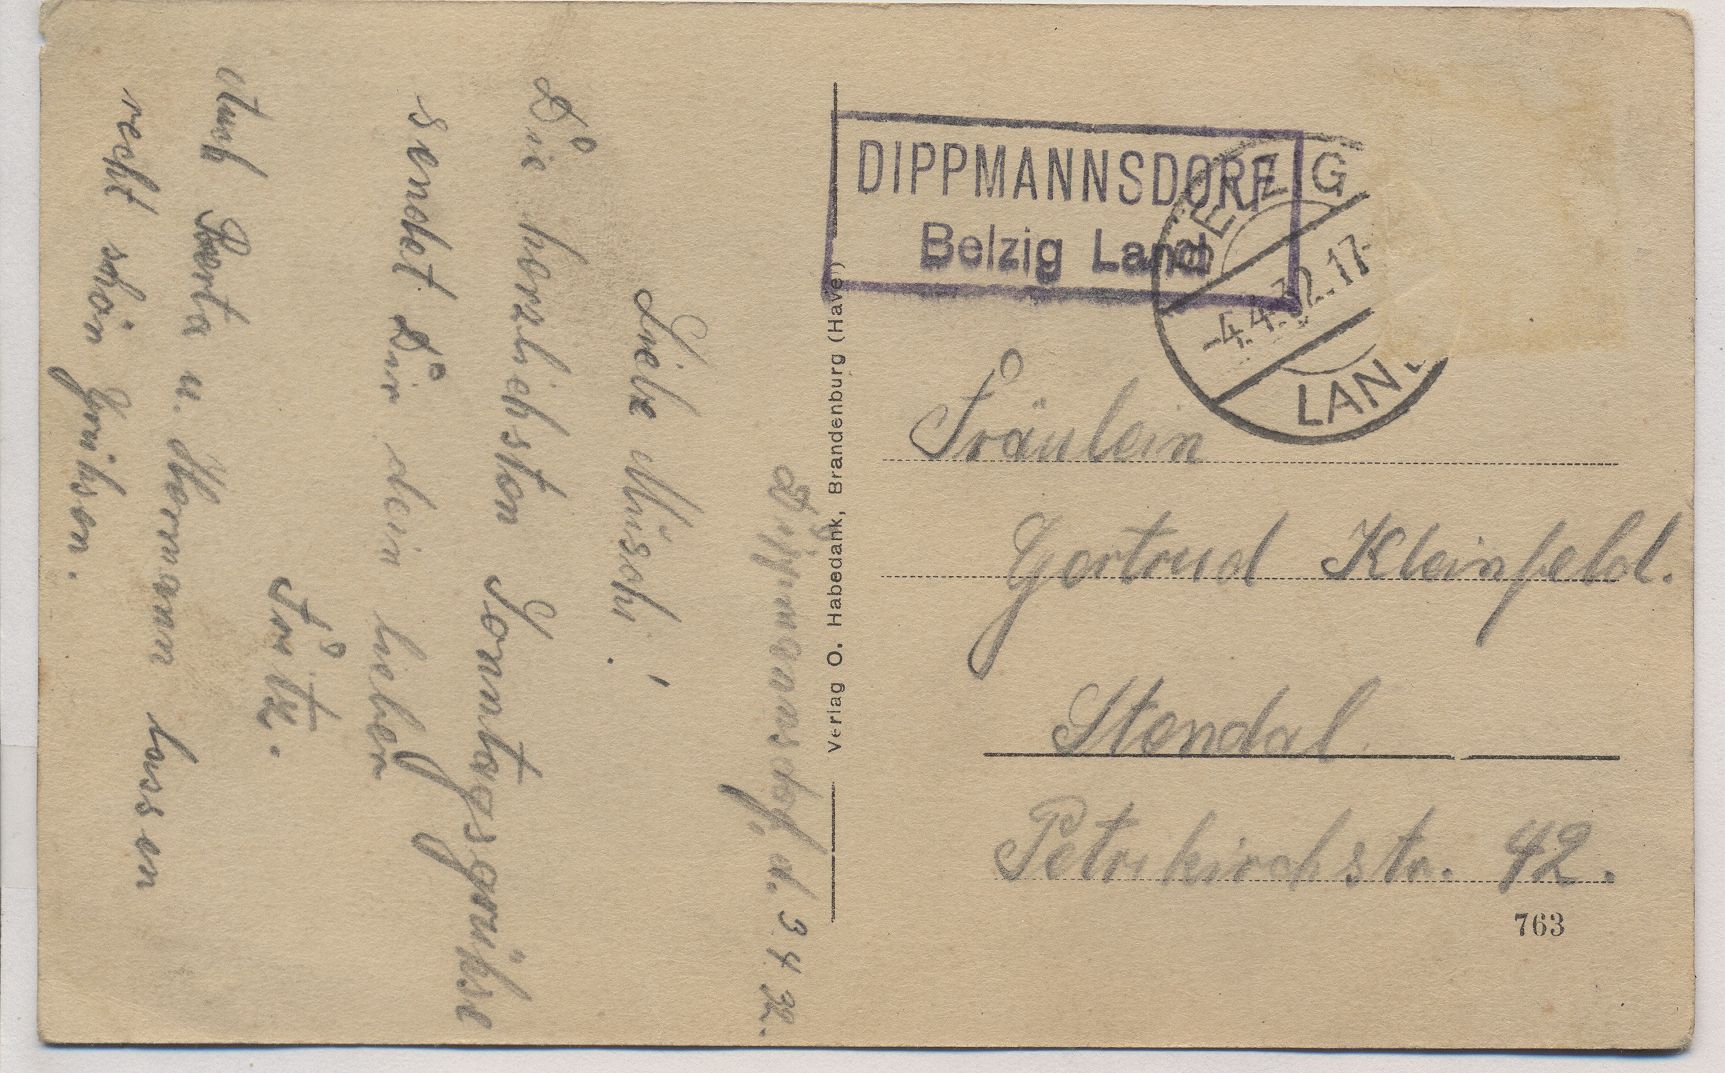 Dippmannsdorf, d. 3.4.32.
Liebe Muschi!
Die herzlichsten Sonntagsgrüße
sendet Dir dein lieber
Fritz.
Auch Berta u. Hermann lassen
recht schön grüßen.
Verlag O. Habedank, Brandenburg (Havel)
DIPPMANNSDORF
Belzig Land
BELZIG
-4.4.32.17-
LAND
Fräulein
Gertrud Kleinfeld.
Stendal.
Petrikirchstr. 42.
763